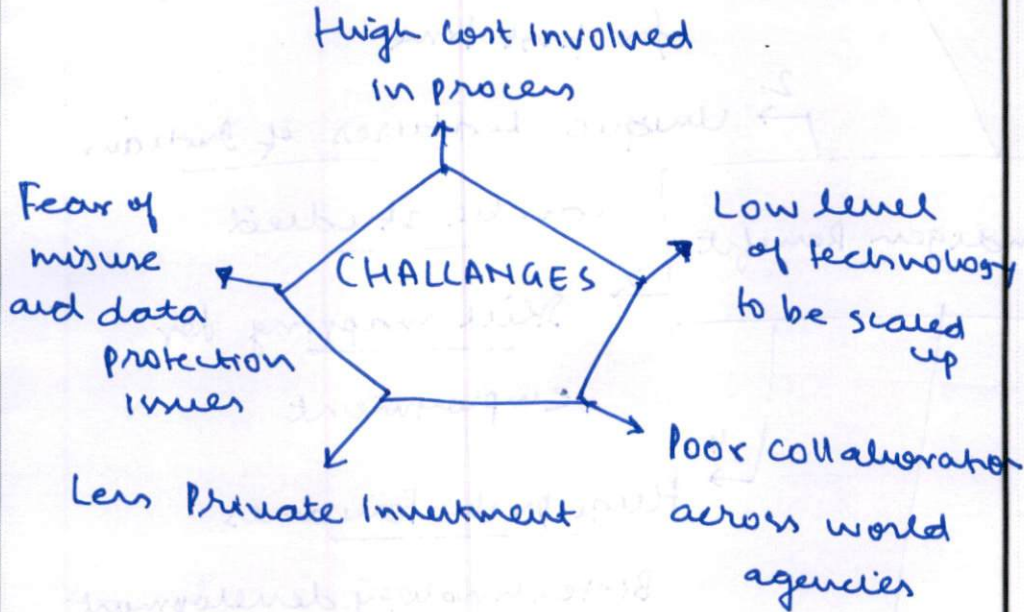 High cost involved
in process
Fear of
misuse
and data
protection
issues
CHALLANGES
Low level
of technology
to be scaled
up
Less Private Investment
Poor collaboration
across world
agencies